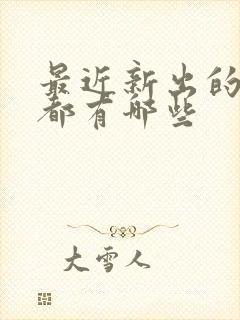 最近新出的
都有哪些
大雪人